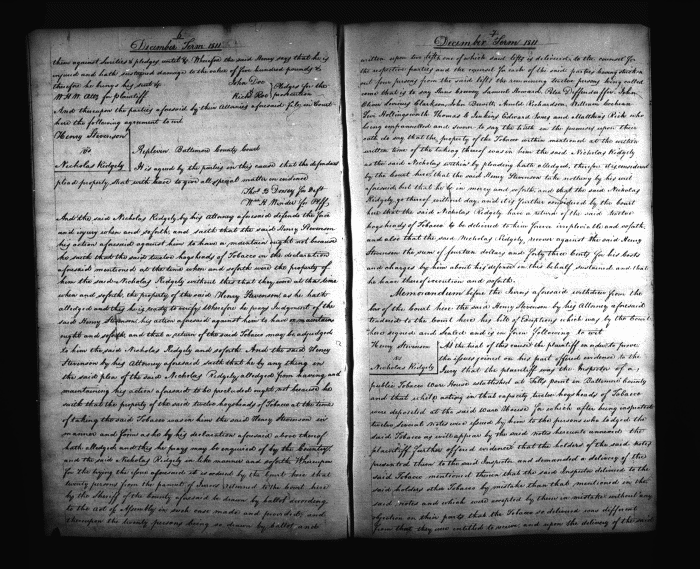 December Term 1811
them against Securities & pledges writ & Wherefore the said Henry says that he is
injured and hath sustained damages to the value of five hundred pounds &
therefore he brings his suit &
John Doe
W. H. W. Atty for Plaintiff
Richd Roe
Pledges for the prosecution
And thereupon the parties aforesaid by their Attornies aforesaid file in Court
here the following agreement to wit
Henry Stevenson
vs
Nicholas Ridgely
Replevin Baltimore County Court
It is agreed by the parties in this cause that the defendant
plead property, that with leave to give all special matter in evidence
Thos B Dorsey for Deft
Wm H Winder for Plff
And the said Nicholas Ridgely by his Attorney aforesaid defends the force
and injury when and soforth and saith that the said Henry Stevenson
his action aforesaid against him to have or maintain ought not because
he saith that the said twelve hogsheads of Tobacco in the declaration
aforesaid mentioned at the time when and soforth were the property of
him the said Nicholas Ridgely without this that they were at that time
when and soforth, the property of the said Henry Stevenson as he hath
alledged and this he is ready to verify Wherefore he prays Judgement if the
said Henry Stevenson his action aforesaid against him to have or maintain
ought and soforth, and that a return of the said Tobacco may be adjudged
to him the said Nicholas Ridgely and soforth. And the said Henry
Stevenson by his Attorney aforesaid saith that he by any thing in
the said plea of the said Nicholas Ridgely alledged from having and
maintaining his action aforesaid to be precluded ought not because he
saith that the property of the said twelve hogsheads of Tobacco at the time
of taking the said Tobacco was in him the said Henry Stevenson in
manner and form as he by his declaration aforesaid above thereof
hath alledged and this he prays may be enquired of by the Country
and the said Nicholas Ridgely in like manner and soforth Whereupon
for the trying the issue aforesaid it is owned by the Court here that
twenty persons from the pannel of Jurors returned to the Court here
by the Sheriff of the County aforesaid be drawn by ballot according
to the Act of Assembly in such case made and provided, and
thereupon the twenty persons being so drawn by ballot and
December Term 1811
written upon two lists one of which said lists is delivered to the counsel for
the respective parties and the counsel for each of the said parties having struck
out four persons from the said lists the remaining twelve persons being called
come that is to say Samuel Howard, Peter Diffenderffer, John
Lovering Clarkson, John Richardson, William Cochran
Hollingsworth Thomas Jenkins Edward and Matthias Rich who
being impannelled and sworn to say the truth in the premises upon their
oath do say that the property of the Tobacco within mentioned at the within
written time of the taking thereof was in him the said Nicholas Ridgely
as the said Nicholas within by pleading hath alledged, therefore it is considered
by the Court here that the said Henry Stevenson take nothing by his writ
aforesaid, but that he be in mercy and soforth and that the said Nicholas
Ridgely, go thereof without day, and it is further considered by the Court
here that the said Nicholas Ridgely have a return of the said twelve
hogsheads of Tobacco to be delivered to him forever irrepleviable and soforth,
and also that the said Nicholas Ridgely, recover against the said Henry
Stevenson the sum of fourteen dollars and forty three Cents for his costs
and charges by him about his defence in this behalf sustained and that
he have thereof execution and soforth
Memorandum before the Jurors aforesaid withdrew from the
bar of the Court here the said Henry Stevenson by his Attorney aforesaid
tendered to the Court here his bill of Exceptions which was by the Court
here signed and sealed and is in form following to wit
Henry Stevenson
vs
Nicholas Ridgely
At the trial of this cause the plaintiff in order to prove
the issues joined on his part offered evidence to the
Jury that the plaintiff was the Inspector of a
public Tobacco Ware House established at Fells point in Baltimore County
and that while acting in that capacity twelve hogsheads of Tobacco
were deposited at the said Ware House for which after being inspected
twelve several Notes were issued by him to the persons who lodged the
said Tobacco as will appear by the said notes herewith annexed the
plaintiff further offered evidence that the holders of the said notes
presented them to the said Inspector and demanded a delivery of the
said Tobacco mentioned therein that the said Inspector delivered to the
said holders other Tobacco by mistake than that mentioned in the
said notes and which were accepted by them in mistake without any
objection on their parts that the Tobacco so delivered was different
from that they were entitled to receive, and upon the delivery of the said